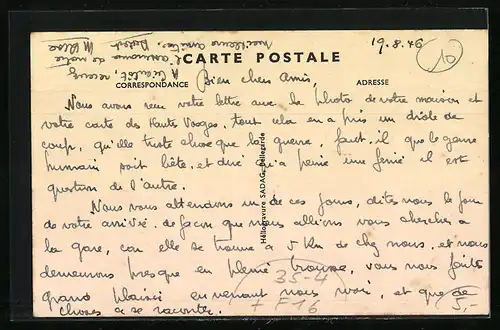 CARTE POSTALE
19.8.46
CORRESPONDANCE
ADRESSE
Bien chers Amis,
Nous avons reçu votre lettre avec la photo de votre maison et
votre carte des Hautes Vosges, tout cela en a pris un drôle de
coup, qu'elle triste chose que la guerre, faut-il que le genre
humain soit bête, et dire qu'a peine une finie il est
question de l'autre.
Nous vous attendons un de ces jours, dites nous le jour
de votre arrivée, de façon que nous allions vous chercher a
la gare, car elle se trouve a 5 Km de chez nous, et nous
demeurons presque en pleine brousse, vous nous faites
grand plaisir en venant nous voir, et que de
choses a se raconter.
A bientôt, recevez
l'assurance de notre
meilleure amitié.
Héliogravure SADAG, Bellegarde
35-4
F 16
5,-
10